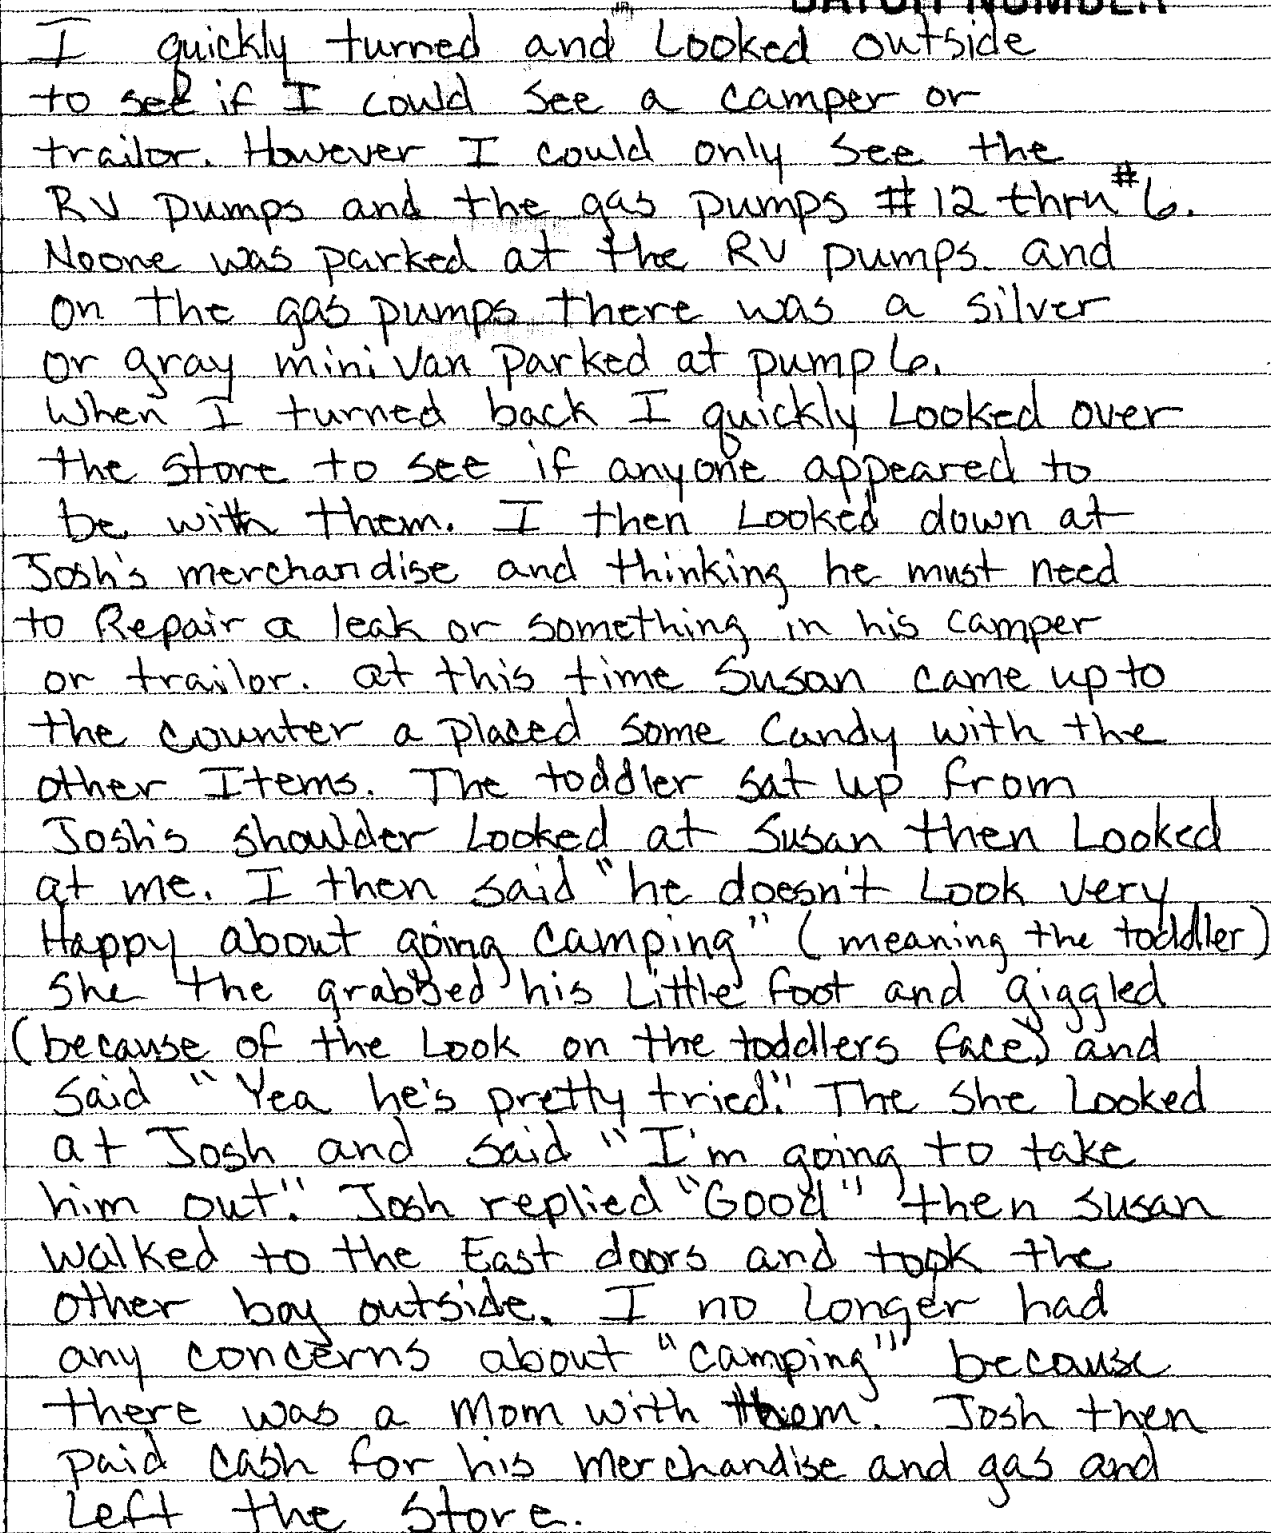 BATCH NUMBER
I quickly turned and Looked outside
to see if I could see a camper or
trailor. However I could only see the
RV pumps and the gas pumps #12 thru #6.
Noone was parked at the RV pumps. and
on the gas pumps there was a silver
or gray mini van parked at pump 6.
When I turned back I quickly Looked over
the store to see if anyone appeared to
be with them. I then Looked down at
Josh's merchandise and thinking he must need
to Repair a leak or something in his camper
or trailor. at this time Susan came up to
the counter a placed some Candy with the
other Items. The toddler sat up from
Josh's shoulder Looked at Susan then Looked
at me. I then said "he doesn't Look very
Happy about going camping" (meaning the toddler)
She the grabbed his Little foot and giggled
(because of the Look on the toddlers face) and
said "Yea he's pretty tried." The she Looked
at Josh and said "I'm going to take
him out." Josh replied "Good" then Susan
walked to the East doors and took the
other boy outside. I no longer had
any concerns about "camping" because
there was a Mom with them. Josh then
paid cash for his merchandise and gas and
Left the store.